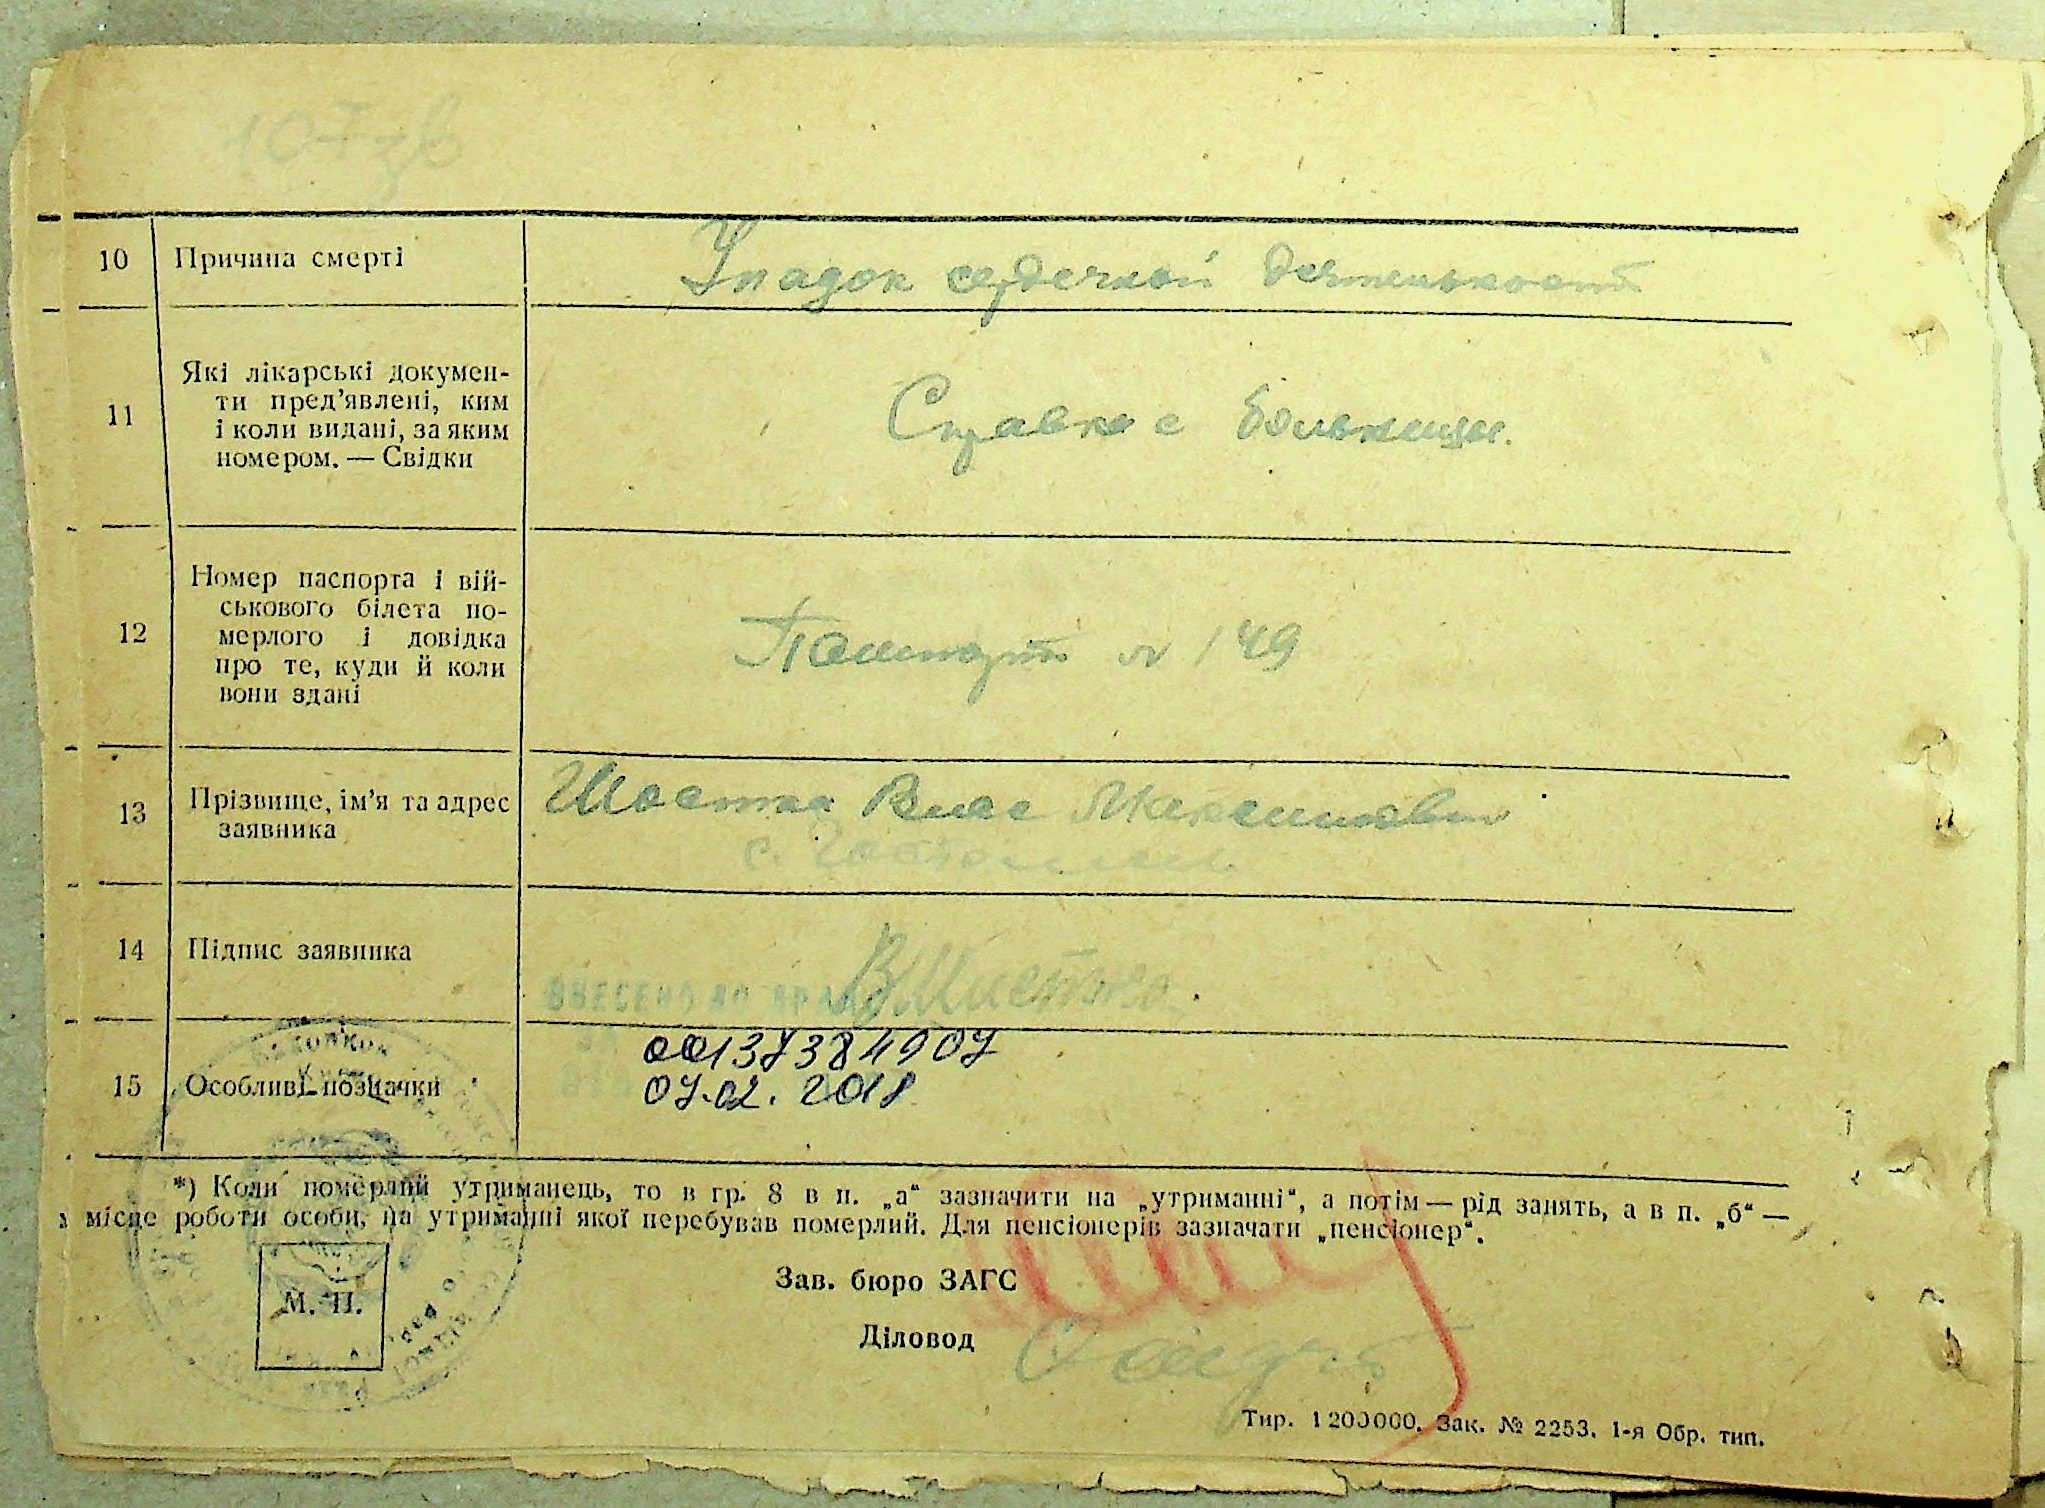 10 Причина смерті Упадок сердечной деятельности
11 Які лікарські докумен-
ти пред'явлені, ким
і коли видані, за яким
номером. — Свідки
Справка с больницы.
12 Номер паспорта і вій-
ськового білета по-
мерлого і довідка
про те, куди й коли
вони здані
Паспорт № 149
13 Прізвище, ім'я та адрес
заявника
Шостка
с.
14 Підпис заявника
ВНЕСЕНО ДО
15 Особливі позначки
00137384907
07.02.2018
*) Коли померлий утриманець, то в гр. 8 в п. „а“ зазначити на „утриманні“, а потім — рід занять, а в п. „б“ —
місце роботи особи, на утриманні якої перебував померлий. Для пенсіонерів зазначати „пенсіонер“.
М. П.
Зав. бюро ЗАГС
Діловод
Тир. 1200000. Зак. № 2253. 1-я Обр. тип.